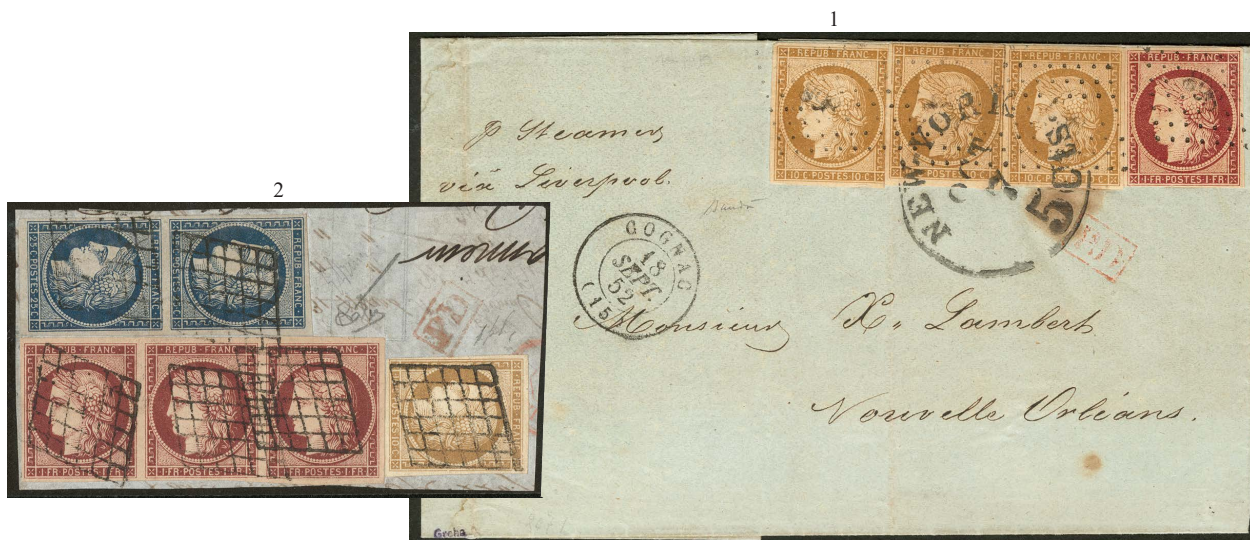 1
REPUB·FRANC·
10·C·POSTES·10·C·
REPUB·FRANC·
10·C·POSTES·10·C·
REPUB·FRANC·
10·C·POSTES·10·C·
REPUB·FRANC·
1·FR·POSTES·1·FR·
NEW-YORK
OCT
7
50
p Steamer
via Liverpool.
COGNAC
18
SEPT.
52
(15)
Monsieur X. Lambert
Nouvelle Orléans.
2
REPUB·FRANC·
25·C·POSTES·25·C·
REPUB·FRANC·
25·C·POSTES·25·C·
PD
REPUB·FRANC·
1·FR·POSTES·1·FR·
REPUB·FRANC·
1·FR·POSTES·1·FR·
REPUB·FRANC·
1·FR·POSTES·1·FR·